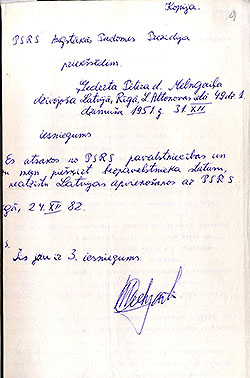 Kopija.
9
PSRS Augstākās Padomes Prezidija
priekšsēdētājam.
Gederta Pētera d. Melngaiļa
dzīvojoša Latvijā, Rīgā, L. Altonavas ielā 49 dz. 1.
dzimuša 1951 g. 31. XII
iesniegums
Es atsakos no PSRS pavalstniecības un
man piešķirt bezpavalstnieka statusu,
neatzīstu Latvijas apvienošanos ar PSRS
24. XII 82.
Šis jau ir 3. iesniegums.